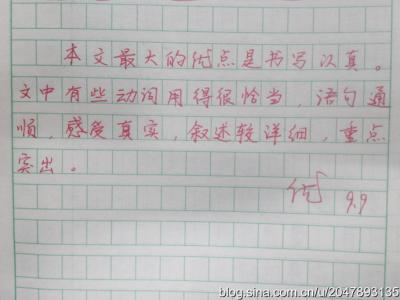 本文最大的优点是书写认真。
文中有些动词用得很恰当，语句通
顺，感受真实，叙述较详细，重点
突出。
优 9.9
blog.sina.com.cn/u/2047893135